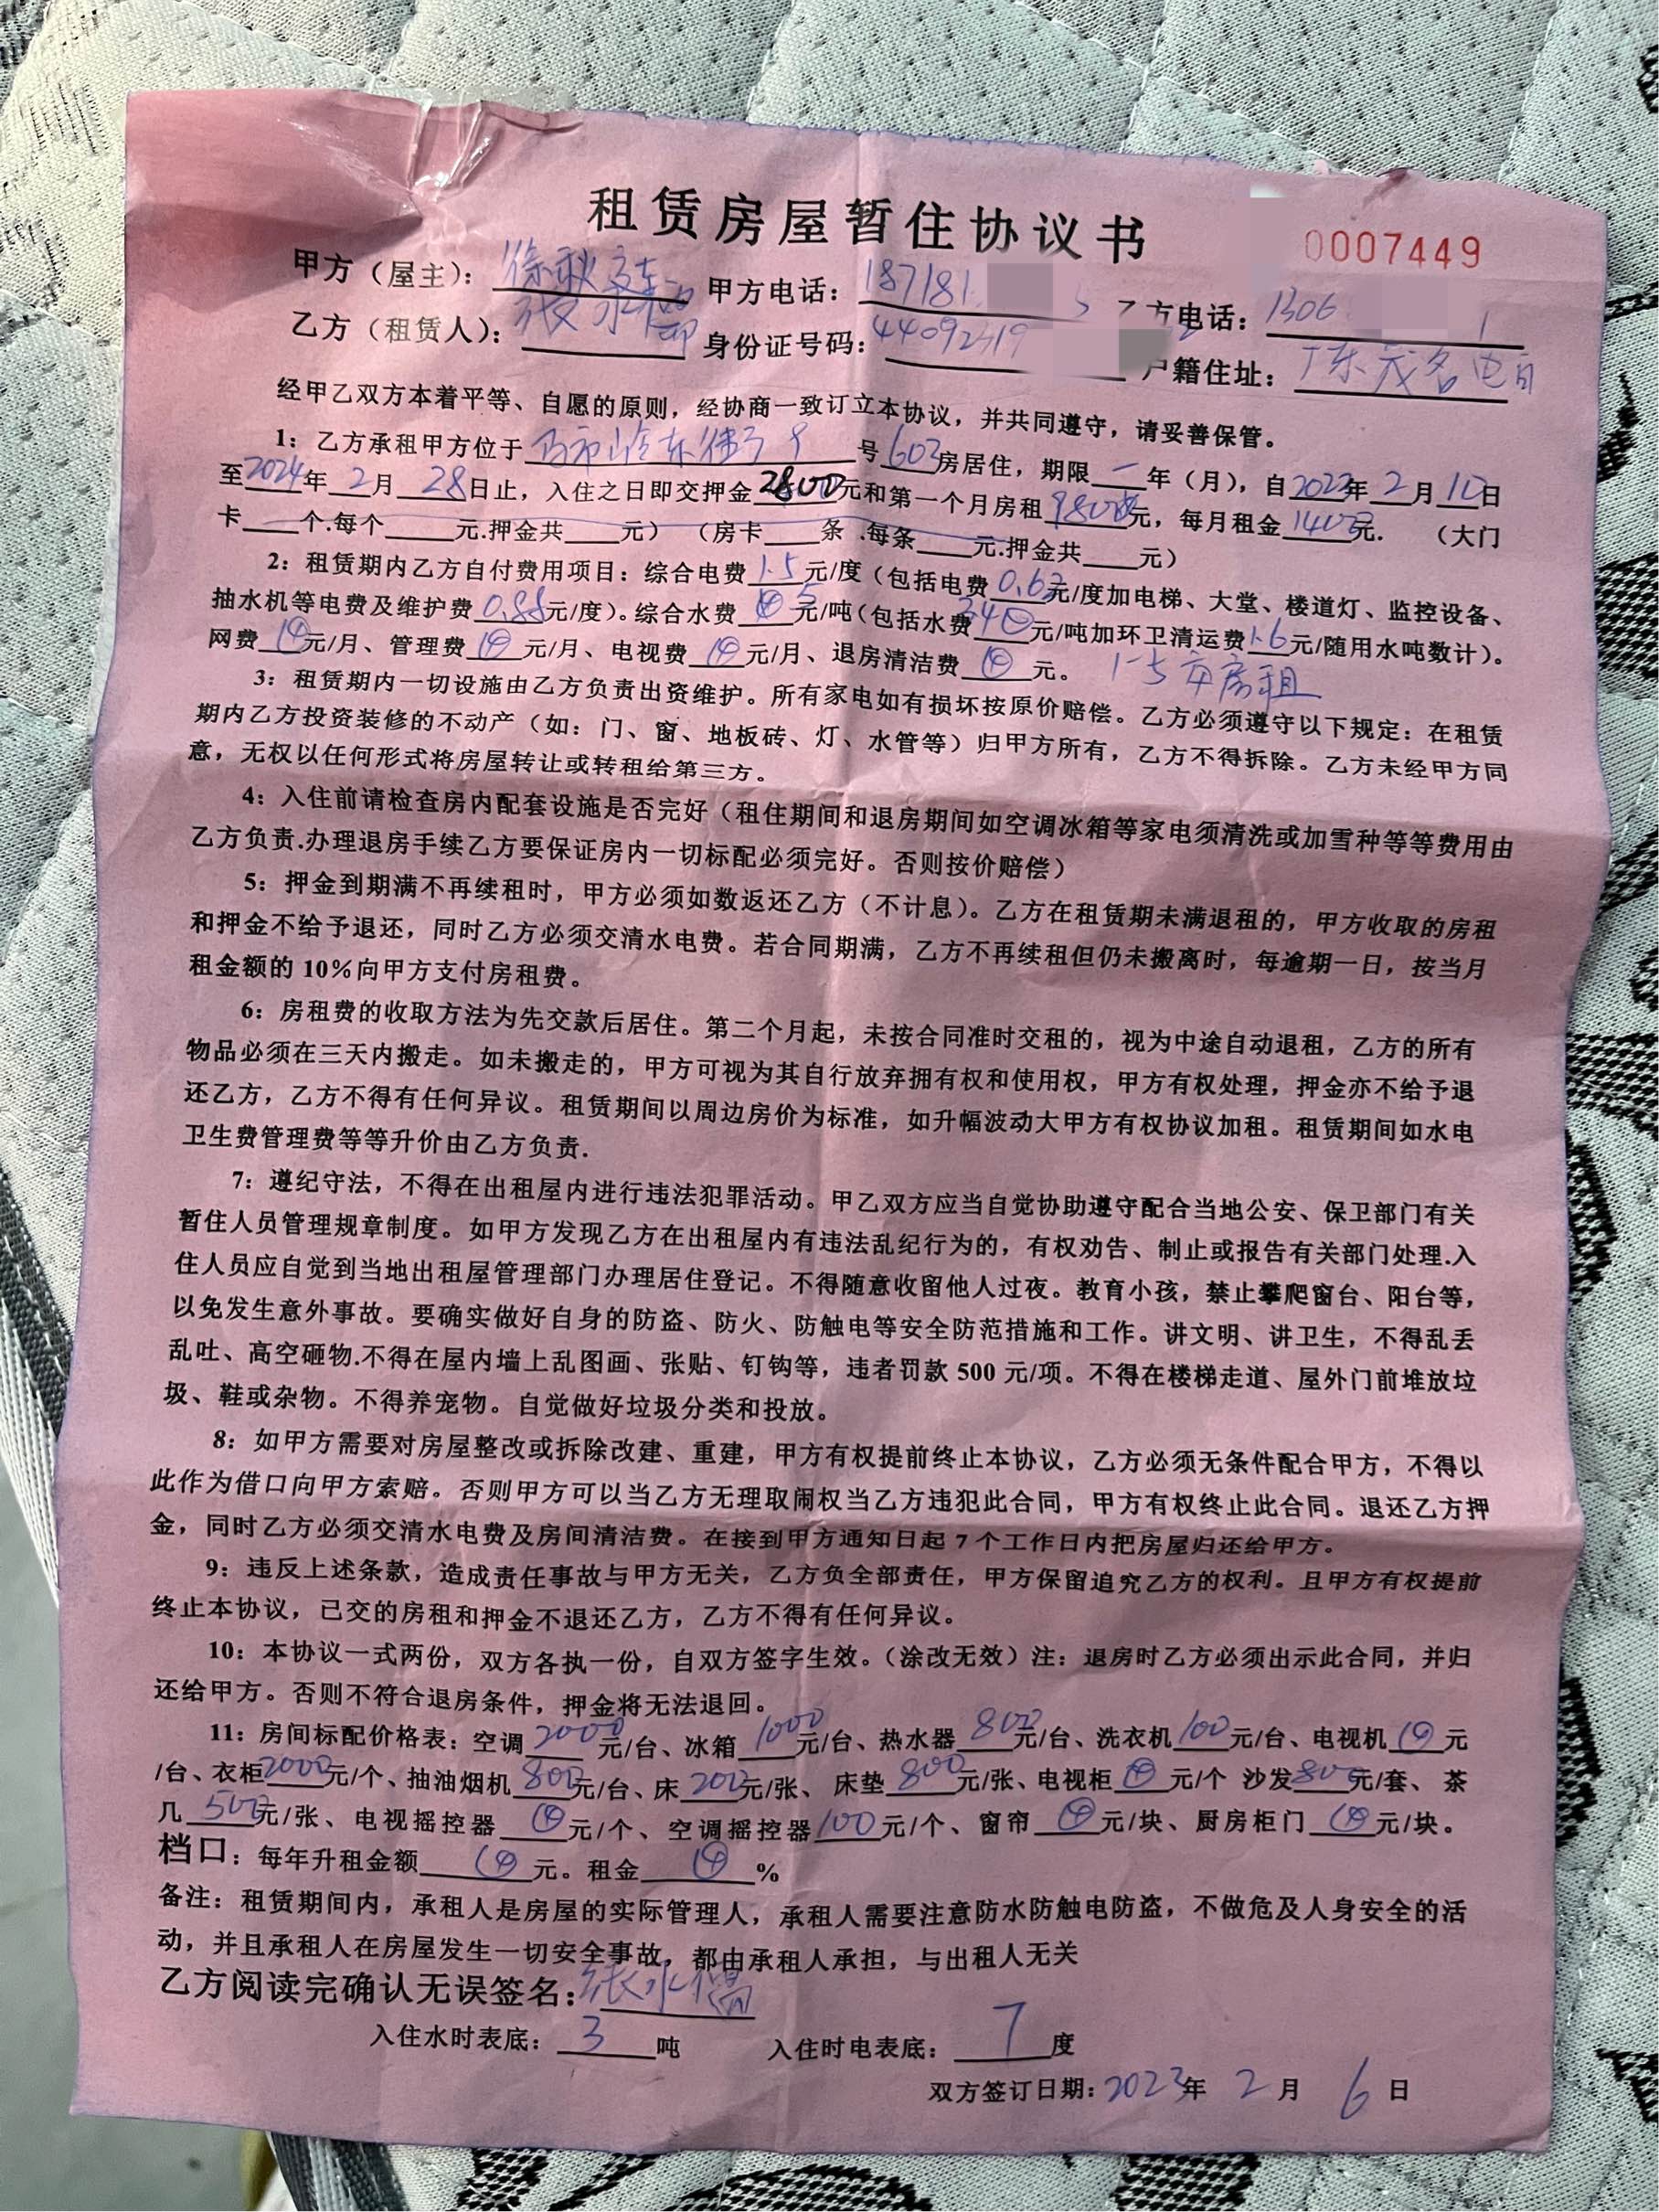 租赁房屋暂住协议书
0007449
甲方（屋主）： 甲方电话：187181 5 乙方电话：1306 1
乙方（租赁人）：张水 身份证号码：44092319 2 户籍住址：广东茂名电白
经甲乙双方本着平等、自愿的原则，经协商一致订立本协议，并共同遵守，请妥善保管。
1：乙方承租甲方位于 号603房居住，期限一年（月），自2023年2月10日
至2024年2月28日止，入住之日即交押金2800元和第一个月房租元，每月租金1400元．（大门
卡 个.每个 元.押金共 元）（房卡 条 .每条 元.押金共 元）
2：租赁期内乙方自付费用项目：综合电费1.5元/度（包括电费0.62元/度加电梯、大堂、楼道灯、监控设备、
抽水机等电费及维护费0.88元/度）。综合水费5元/吨（包括水费3.4元/吨加环卫清运费1.6元/随用水吨数计）。
网费 元/月、管理费 元/月、电视费 元/月、退房清洁费 元。 1-5 房租
3：租赁期内一切设施由乙方负责出资维护。所有家电如有损坏按原价赔偿。乙方必须遵守以下规定：在租赁
期内乙方投资装修的不动产（如：门、窗、地板砖、灯、水管等）归甲方所有，乙方不得拆除。乙方未经甲方同
意，无权以任何形式将房屋转让或转租给第三方。
4：入住前请检查房内配套设施是否完好（租住期间和退房期间如空调冰箱等家电须清洗或加雪种等等费用由
乙方负责.办理退房手续乙方要保证房内一切标配必须完好。否则按价赔偿）
5：押金到期满不再续租时，甲方必须如数返还乙方（不计息）。乙方在租赁期未满退租的，甲方收取的房租
和押金不给予退还，同时乙方必须交清水电费。若合同期满，乙方不再续租但仍未搬离时，每逾期一日，按当月
租金额的10%向甲方支付房租费。
6：房租费的收取方法为先交款后居住。第二个月起，未按合同准时交租的，视为中途自动退租，乙方的所有
物品必须在三天内搬走。如未搬走的，甲方可视为其自行放弃拥有权和使用权，甲方有权处理，押金亦不给予退
还乙方，乙方不得有任何异议。租赁期间以周边房价为标准，如升幅波动大甲方有权协议加租。租赁期间如水电
卫生费管理费等等升价由乙方负责.
7：遵纪守法，不得在出租屋内进行违法犯罪活动。甲乙双方应当自觉协助遵守配合当地公安、保卫部门有关
暂住人员管理规章制度。如甲方发现乙方在出租屋内有违法乱纪行为的，有权劝告、制止或报告有关部门处理.入
住人员应自觉到当地出租屋管理部门办理居住登记。不得随意收留他人过夜。教育小孩，禁止攀爬窗台、阳台等，
以免发生意外事故。要确实做好自身的防盗、防火、防触电等安全防范措施和工作。讲文明、讲卫生，不得乱丢
乱吐、高空砸物.不得在屋内墙上乱图画、张贴、钉钩等，违者罚款500元/项。不得在楼梯走道、屋外门前堆放垃
圾、鞋或杂物。不得养宠物。自觉做好垃圾分类和投放。
8：如甲方需要对房屋整改或拆除改建、重建，甲方有权提前终止本协议，乙方必须无条件配合甲方，不得以
此作为借口向甲方索赔。否则甲方可以当乙方无理取闹权当乙方违犯此合同，甲方有权终止此合同。退还乙方押
金，同时乙方必须交清水电费及房间清洁费。在接到甲方通知日起7个工作日内把房屋归还给甲方。
9：违反上述条款，造成责任事故与甲方无关，乙方负全部责任，甲方保留追究乙方的权利。且甲方有权提前
终止本协议，已交的房租和押金不退还乙方，乙方不得有任何异议。
10：本协议一式两份，双方各执一份，自双方签字生效。（涂改无效）注：退房时乙方必须出示此合同，并归
还给甲方。否则不符合退房条件，押金将无法退回。
11：房间标配价格表：空调2000元/台、冰箱1000元/台、热水器800元/台、洗衣机100元/台、电视机 元
/台、衣柜2000元/个、抽油烟机800元/台、床200元/张、床垫800元/张、电视柜 元/个 沙发800元/套、茶
几500元/张、电视摇控器 元/个、空调摇控器100元/个、窗帘 元/块、厨房柜门 元/块。
档口：每年升租金额 元。租金 %
备注：租赁期间内，承租人是房屋的实际管理人，承租人需要注意防水防触电防盗，不做危及人身安全的活
动，并且承租人在房屋发生一切安全事故，都由承租人承担，与出租人无关
乙方阅读完确认无误签名：张水
入住水时表底：3吨 入住时电表底：7度
双方签订日期：2023年2月6日